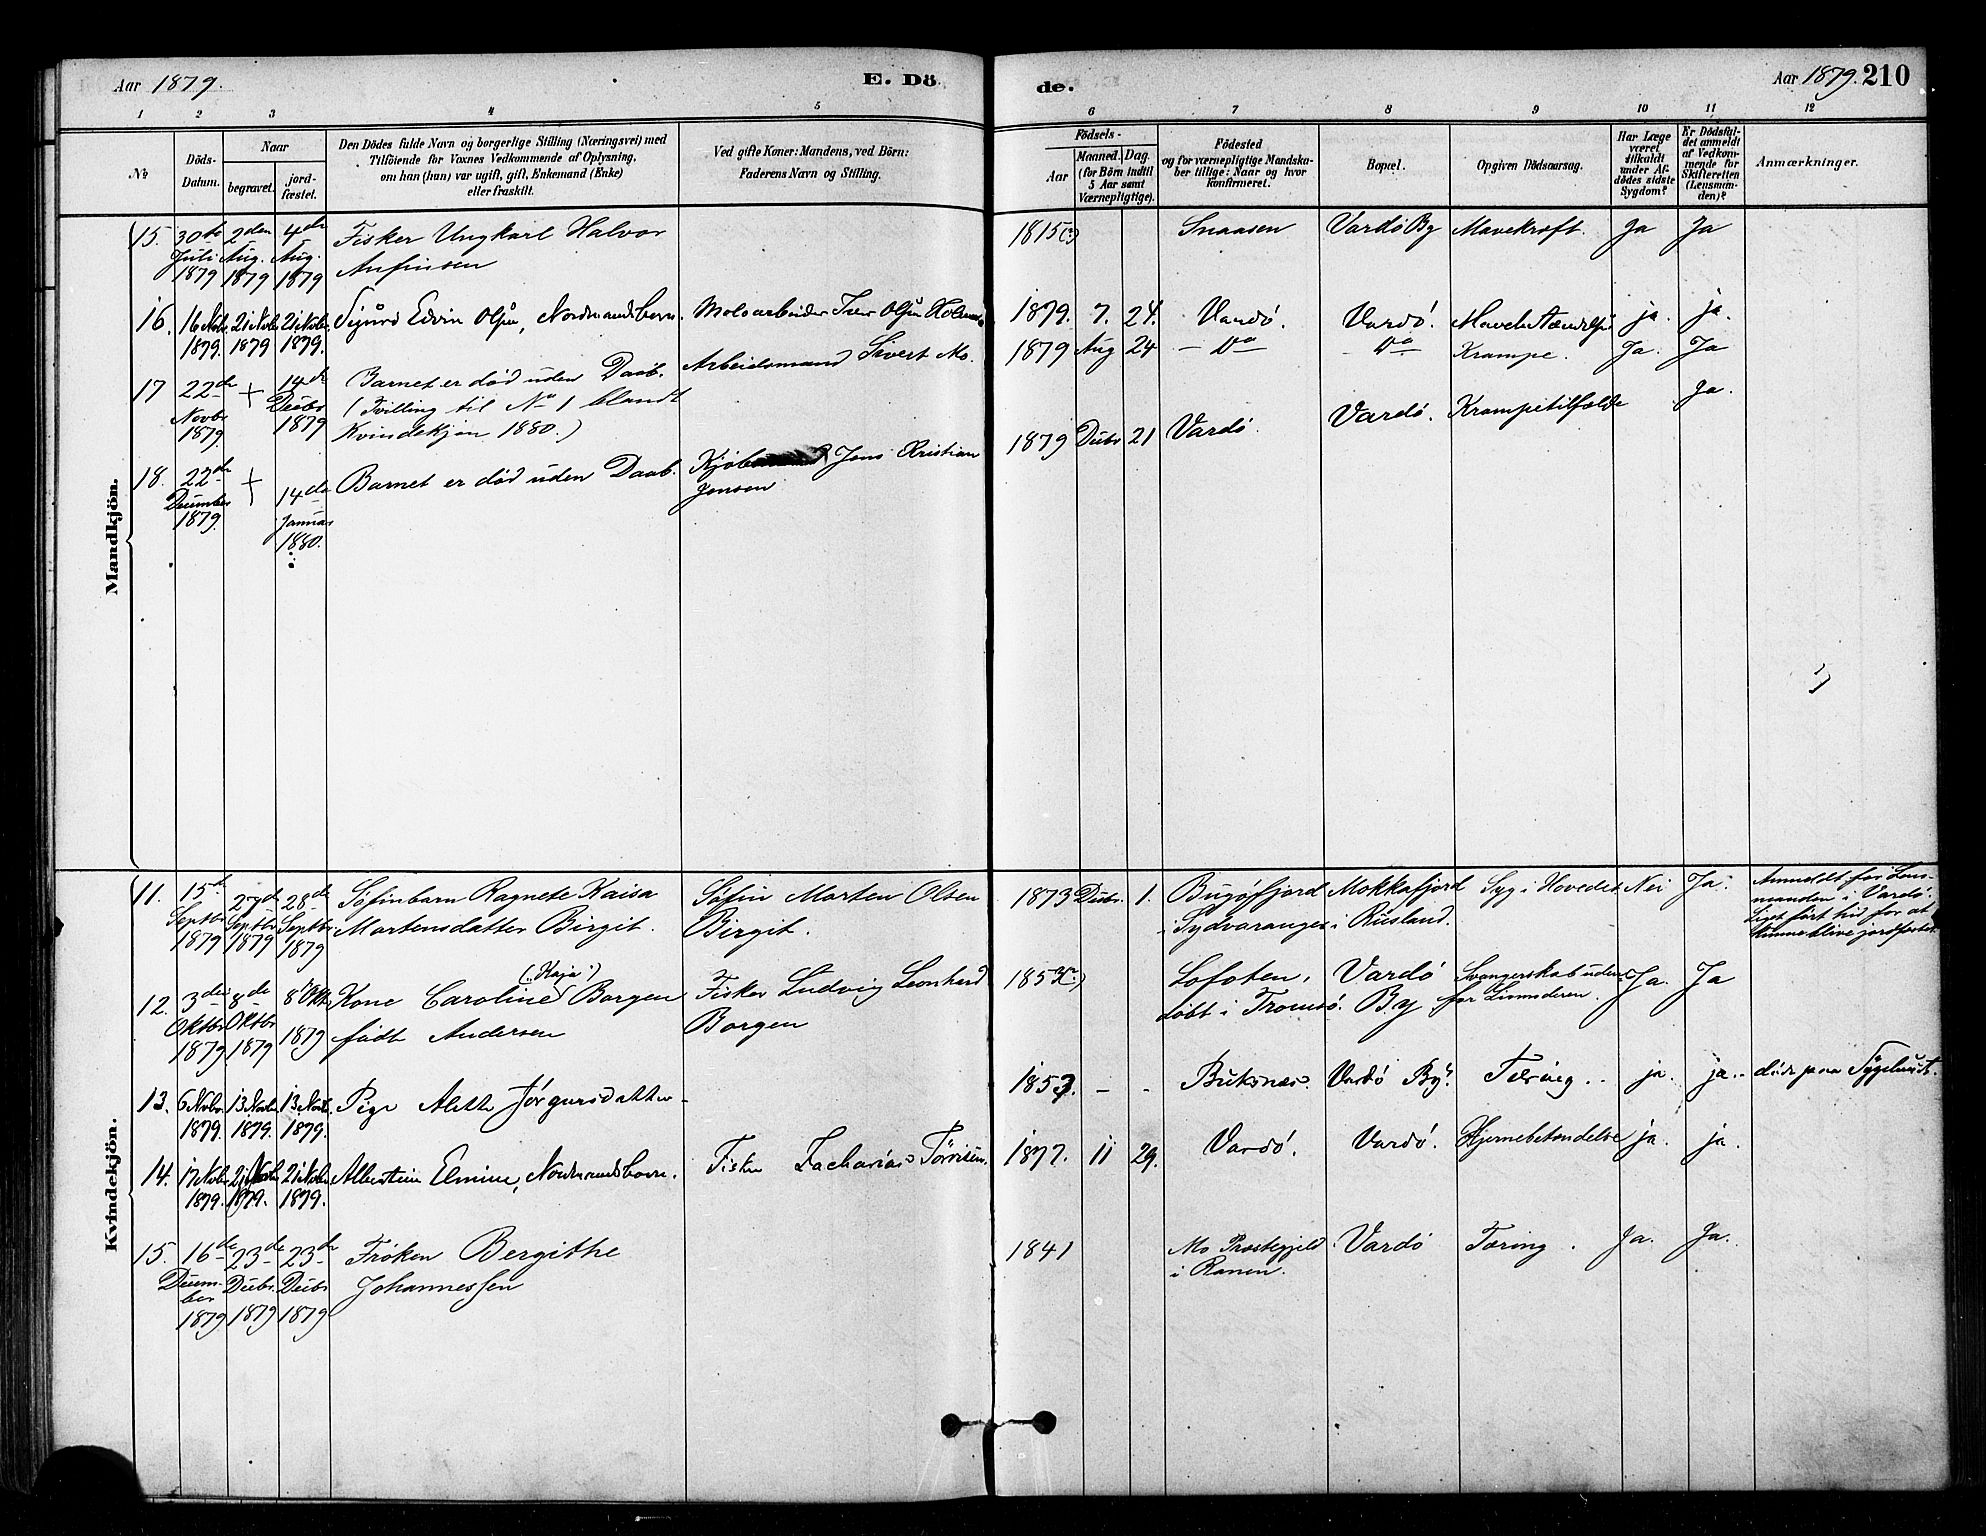 Aar 1879.
E. Dö
de.
Aar 1879. 210
1 2 3 4 5 6 7 8 9 10 11 12
No
Döds-
Datum.
Naar
begravet.
jord-
fæstet.
Den Dödes fulde Navn og borgerlige Stilling (Næringsvei) med
Tilföiende for Voxnes Vedkommende af Oplysning,
om han (hun) var ugift, gift, Enkemand (Enke)
eller fraskilt.
Ved gifte Koner: Mandens, ved Börn:
Faderens Navn og Stilling.
Födsels-
Aar
Maaned. Dag.
(for Börn indtil
5 Aar samt
Værnepligtige).
Födested
og for værnepligtige Mandska-
ber tillige: Naar og hvor
konfirmeret.
Bopæl.
Opgiven Dödsaarsag.
Har Læge
været
tilkaldt
under Af-
dödes sidste
Sygdom?
Er Dödsfal-
det anmeldt
af Vedkom-
mende for
Skifteretten
(Lensman-
den)?
Anmærkninger.
Mandkjön.
15. 30te Juli 1879 2den Aug. 1879 4de Aug. 1879
Fisker Ungkarl Halvor
Anfinsen
1815(?) Snaasen Vardö By Mavekræft. Ja Ja
16. 16 Nobr. 1879. 21 Nobr. 1879 21 Nobr. 1879.
Sigurd Edvin Olsen, Nordmandsbarn. Moloarbeider Iver Olsen
1879. 7. 24. Vardö. Vardö. ja. ja.
17 22de Novbr. 1879 + 14de Decbr 1879
Barnet er död uden Daab. Arbeidsmand Sivert Mo.
(Tvilling til No 1 blandt
Kvindekjön 1880.)
1879 Aug 24 — Do — Do Krampe. Ja. Ja
18. 22de December 1879. + 14de Januar 1880.
Barnet er död uden Daab. Jens Kristian
Jensen
1879 Decbr 21 Vardö. Vardö. Krampetilfælde Ja.
Kvindekjön.
11. 15de Septbr 1879 27de Septbr 1879 28de Septbr 1879
Söfinbarn Ragnete Kaisa Söfin Morten Olsen
Mortensdatter Birgit. Birgit.
1873 Decbr. 1. Bugöfjord Mokkafjord Syg i Hovedet Nei Ja.
i Sydvaranger i Rusland.
Anmeldt for Lens-
manden i Vardö.
Liget fört hid for at
kunne blive jordfæstet.
12. 3de Oktbr 1879 8de Oktbr 1879 8de Okt. 1879
("Kaja")
Kone Caroline Borgen Fisker Ludvig Leonhard
födt Andersen Borgen
Lofoten, Vardö Svangerskab uden- Ja. Ja
döbt i Tromsö. By for Livmoderen.
13. 6 Nobr. 1879. 13 Novbr. 1879. 13 Novbr. 1879.
Pige Alette Jörgensdatter –
1853. – - Buksnæs. Vardö By. Tæring. ja. ja. döde paa Sygehuset.
14. 17 Nobr. 1879. 21 Nobr. 1879. 21 Nobr. 1879.
Albertine Elmine, Nordmandsbarn. Fisker Zacharias
1877. 11 29. Vardö. Vardö. Hjernebetændelse ja. ja.
15. 16de December 1879 23de Decbr. 1879 23de Decbr 1879
Fröken Bergithe
Johannessen
1841 Mo Præstegjeld Vardö Tæring. Ja. Ja.
i Ranen.